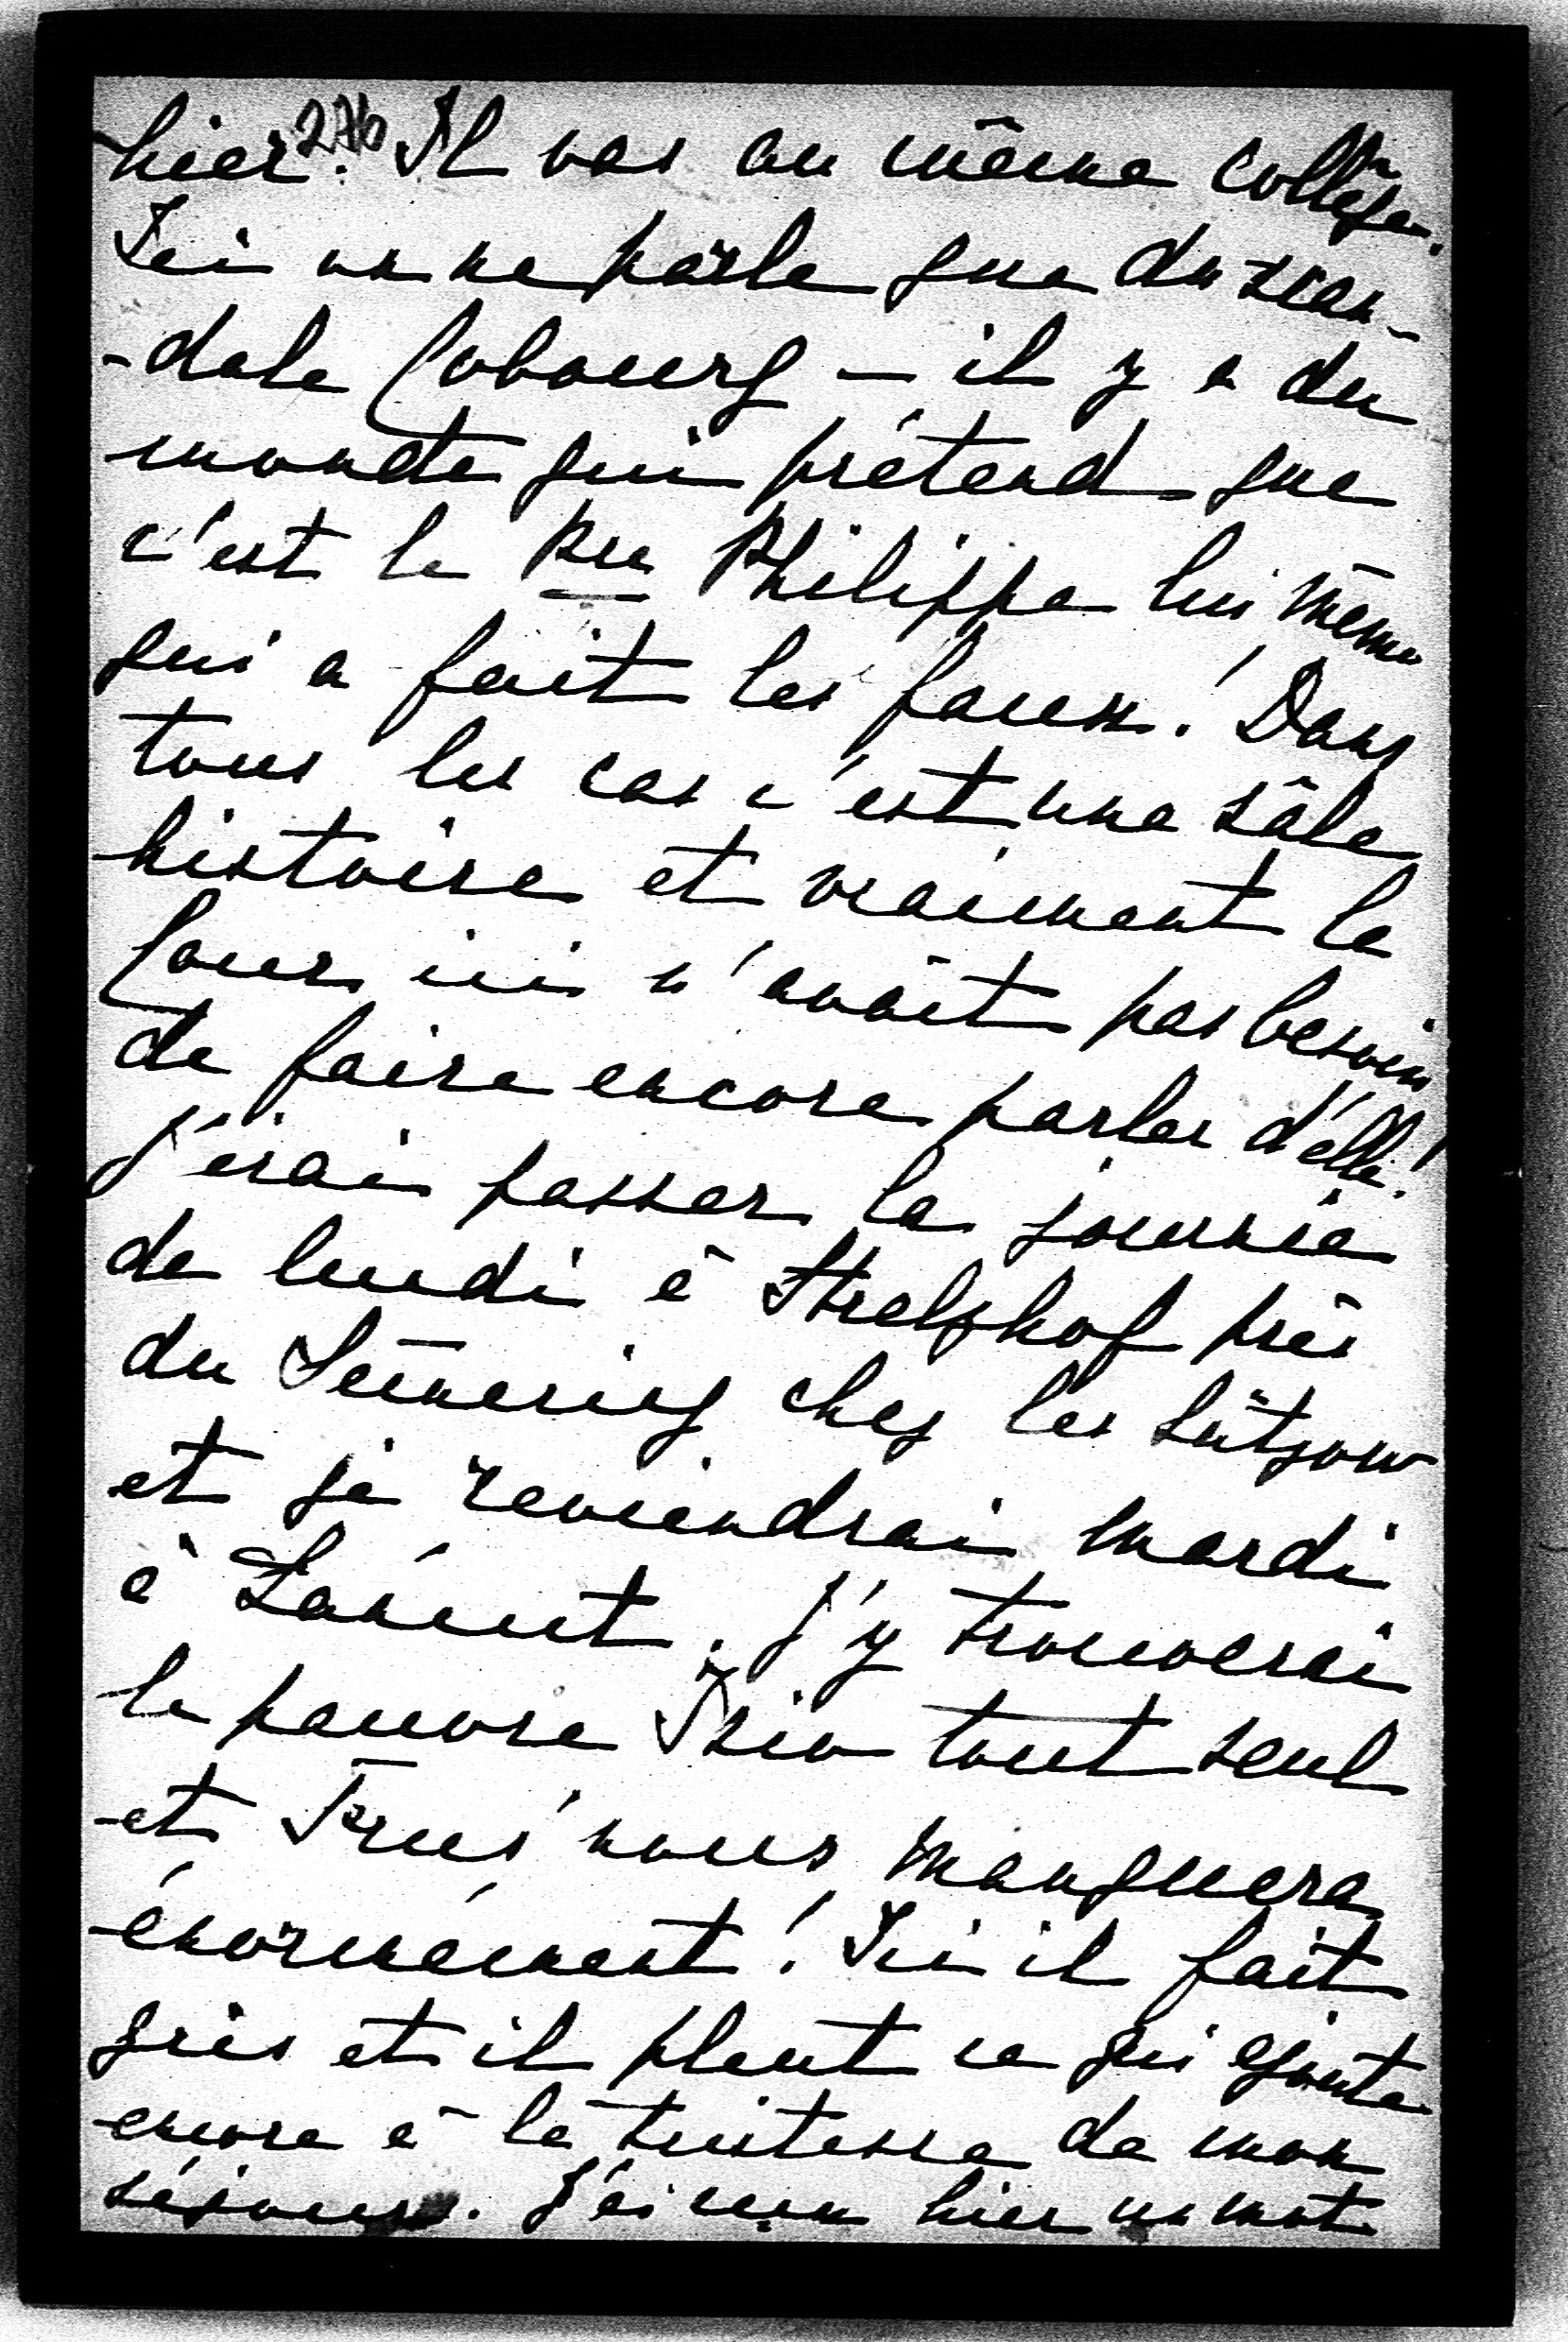 hier. 276 Il vas au même collège.
Ici on ne parle que du scan-
-dale Cobourg – il y a du
monde qui prétend que
c'est le Pce Philippe lui même
qui a fait les faux! Dans
tous les cas c'est une sâle
histoire et vraiment la
Cour ici n'avait pas besoin
de faire encore parler d'elle!
J'irai passer la journée
de lundi à Strelzhof près
du Semering chez les Lützow
et je reviendrai mardi
à Łańcut. J'y trouverai
le pauvre Izio tout seul
et Fruś nous manquera
énormément! Ici il fait
gris et il pleut ce qui ajoute
encore à la tristesse de mon
séjour. J'ai reçu hier un mot